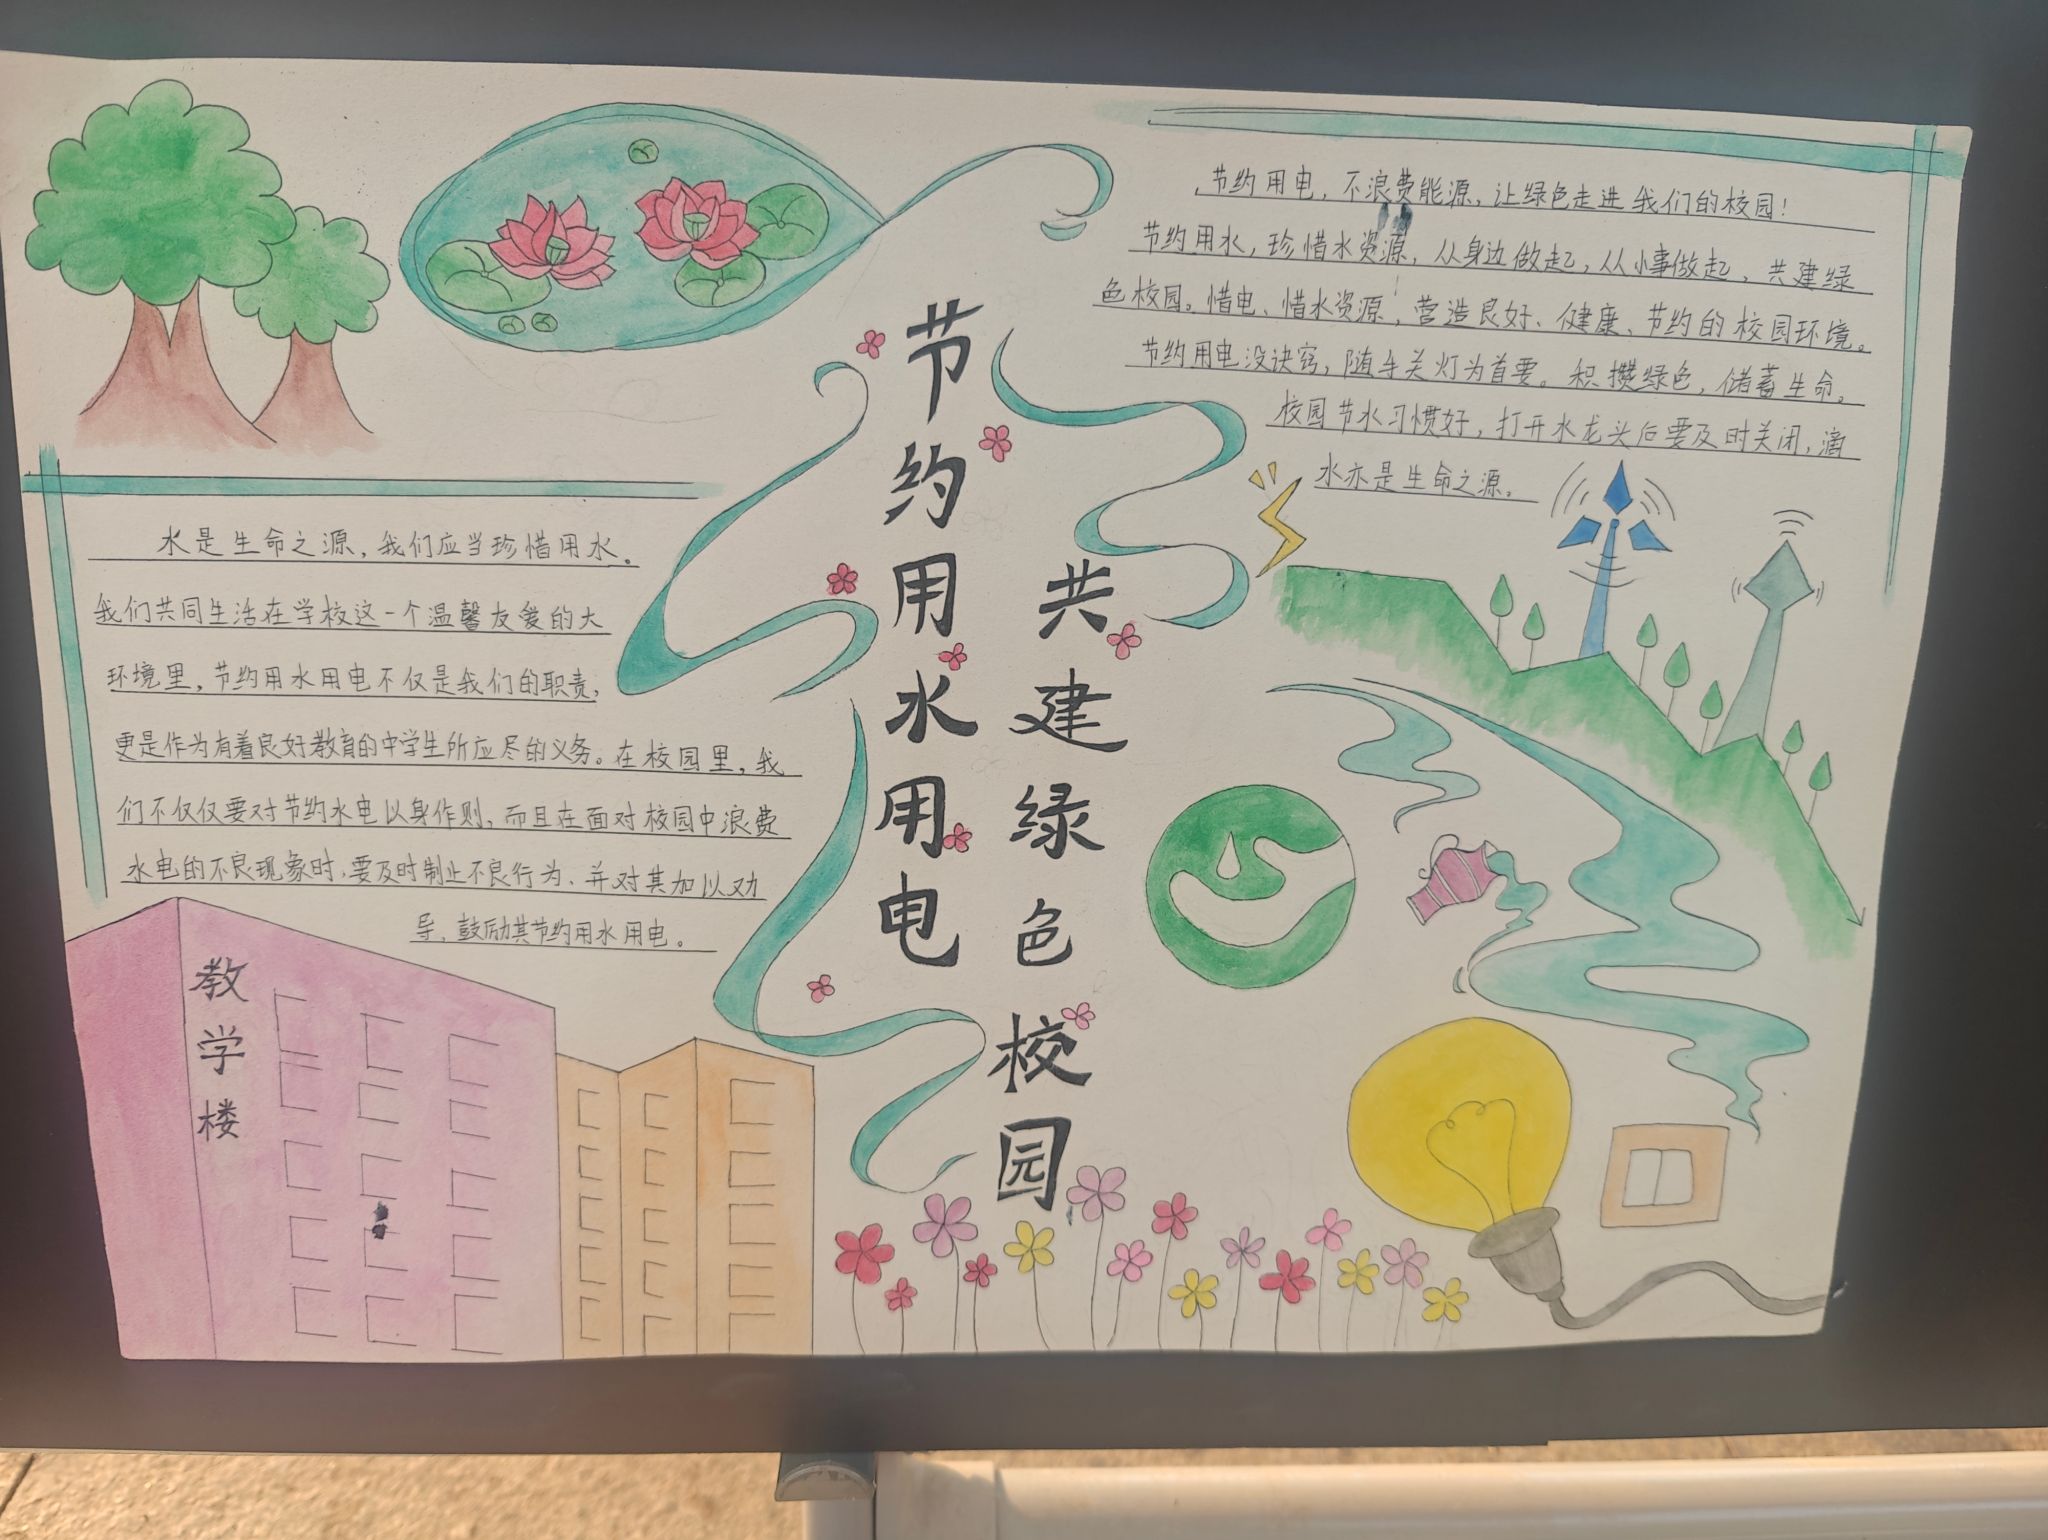 节约用水用电
共建绿色校园
节约用电，不浪费能源，让绿色走进我们的校园！
节约用水，珍惜水资源，从身边做起，从小事做起，共建绿
色校园。惜电、惜水资源，营造良好、健康、节约的校园环境。
节约用电没诀窍，随手关灯为首要。积攒绿色，储蓄生命。
校园节水习惯好，打开水龙头后要及时关闭，滴
水亦是生命之源。
水是生命之源，我们应当珍惜用水。
我们共同生活在学校这一个温馨友爱的大
环境里，节约用水用电不仅是我们的职责，
更是作为有着良好教育的中学生所应尽的义务。在校园里，我
们不仅仅要对节约水电以身作则，而且在面对校园中浪费
水电的不良现象时，要及时制止不良行为、并对其加以劝
导，鼓励其节约用水用电。
教学楼